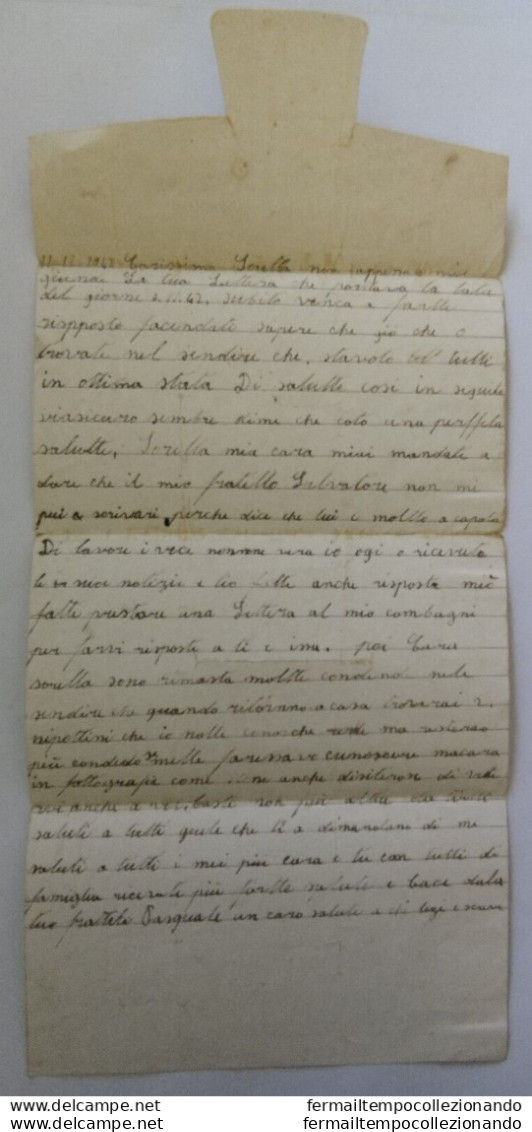 Carissima Sorella non appena mi
giunse La tua Lettera che portava la data
del giorno 2.11.42. subito vengo a farti
risposto facendoti sapere che gio che o
trovato nel sendire che, stavato tutti
in ottima stata Di salutte cosi in seguito
viasicuro sembre dime che coto una perffeta
salutte, Sorella mia cara mivi mandate a
dare che il mio fratello Salvatore non mi
può a scrivari perche dice che lui e moltto acapato
Di lavore invece non vera io ogi o ricevuto
le sue notizie e lio datte anche risposta
fatte prestare una Lettera al mio combagni
per farvi risposte a ti e ime. poi Cara
sorella sono rimasta moltte condendo nele
sendire che quando ritornno a casa troverai 2.
nipottini che io notte conosche ma
più condendo mette faressevo cunoscere macara
in fottografie come anche
rvi anche a voi. Basti non più altro
saluti a tutti quele che ti a dimandano di me
saluti a tutti i mei più cara e tu can tutti di
famiglia ricevati più fortte saluti e baci dala
tuo fratelo Pasquale un caro saluto a chi lege e scrive
fermailtempocollezionando
fermailtempocollezionando
fermailtempocollezionando
fermailtempocollezionando